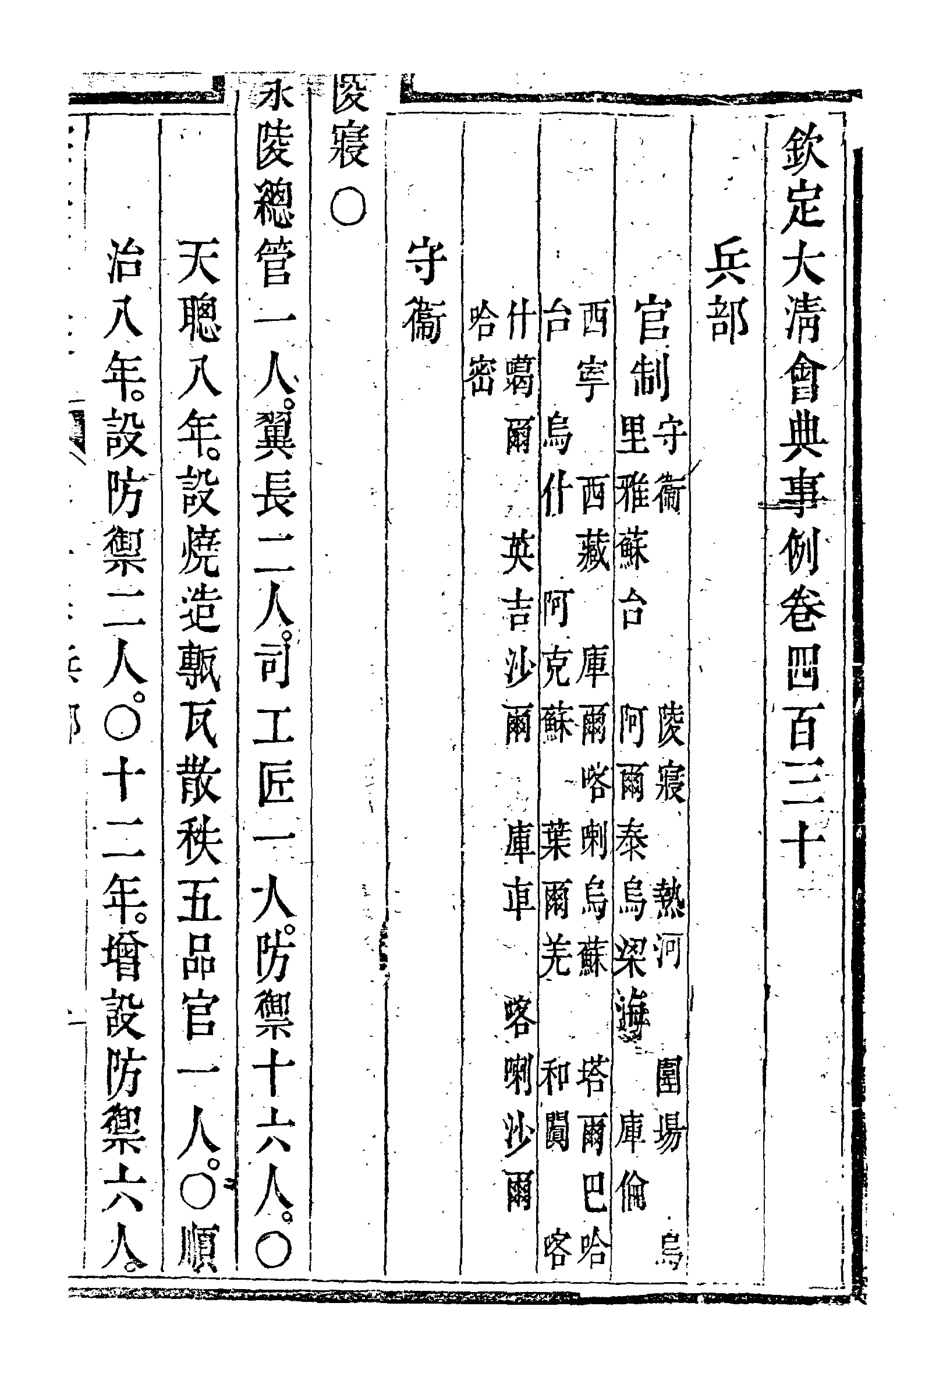 欽定大清會典事例卷四百三十
兵部
官制 守衞 陵寢 熱河 圍場 烏
里雅蘇台 阿爾泰烏梁海 庫倫
西寧 西藏 庫爾喀喇烏蘇 塔爾巴哈
台 烏什 阿克蘇 葉爾羌 和闐 喀
什噶爾 英吉沙爾 庫車 喀喇沙爾
哈密
守衞
陵寢〇
永陵總管一人。翼長二人。司工匠一人。防禦十六人。〇
天聰八年。設燒造甎瓦散秩五品官一人。〇順
治八年。設防禦二人。〇十二年。增設防禦六人。